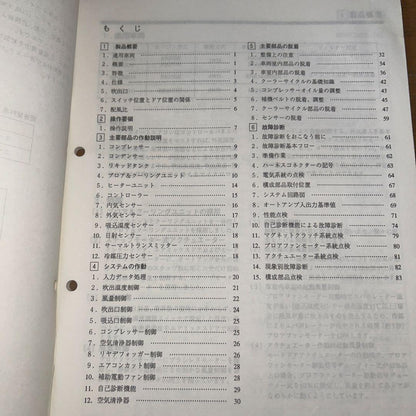 もくじ
1 製品概要
1. 適用車両 1
2. 概要 1
3. 特徴 1
4. 仕様 2
5. 吹出口 4
6. スイッチ位置とドア位置の関係 5
7. 配風比 6
2 操作要領
1. 操作説明 7
3 主要部品の作動説明
1. コンプレッサー 9
2. コンデンサー 9
3. リキッドタンク
4. ブロア&クーリングユニット
5. ヒーターユニット 14
6. コントローラー 15
7. 内気センサー 18
8. 外気センサー 18
9. 吸込温度センサー 18
10. 日射センサー 19
11. サーマルトランスミッター 19
12. 冷媒圧力センサー 19
4 システムの作動
1. 入力データ処理 20
2. 吹出温度制御 21
3. 風量制御 22
4. 吹出口制御 24
5. 吸込口制御 25
6. コンプレッサー制御 25
7. 空気清浄器制御 26
8. リヤデフォッガー制御 26
9. エアコンカット制御 26
10. 補助電動ファン制御 28
11. 自己診断機能 29
12. 空気清浄器 30
5 主要部品の脱着
1. 整備上の注意 32
2. 車両屋内部品の脱着 34
3. 車室内部品の脱着 36
4. クーラーサイクルの基礎知識 42
5. コンプレッサーオイル量の調整
6. 補機ベルトの脱着、調整 45
7. クーラーサイクル部品の脱着
8. センサーの脱着
6 故障診断
1. 故障診断をおこなう前に 61
2. 故障診断基本フロー
3. 準備作業
4. ハーネスコネクターの記号 63
5. 電気系統の点検
6. 構成部品取付位置 67
7. システム回路図
8. オートアンプ入出力基準値
9. 性能点検 71
10. 自己診断機能による故障診断 74
11. マグネットクラッチ系統点検
12. ブロアファンモーター系統点検
13. アクチュエーター系統点検 81
14. 現象別故障診断 82
15. 構成部品点検 83